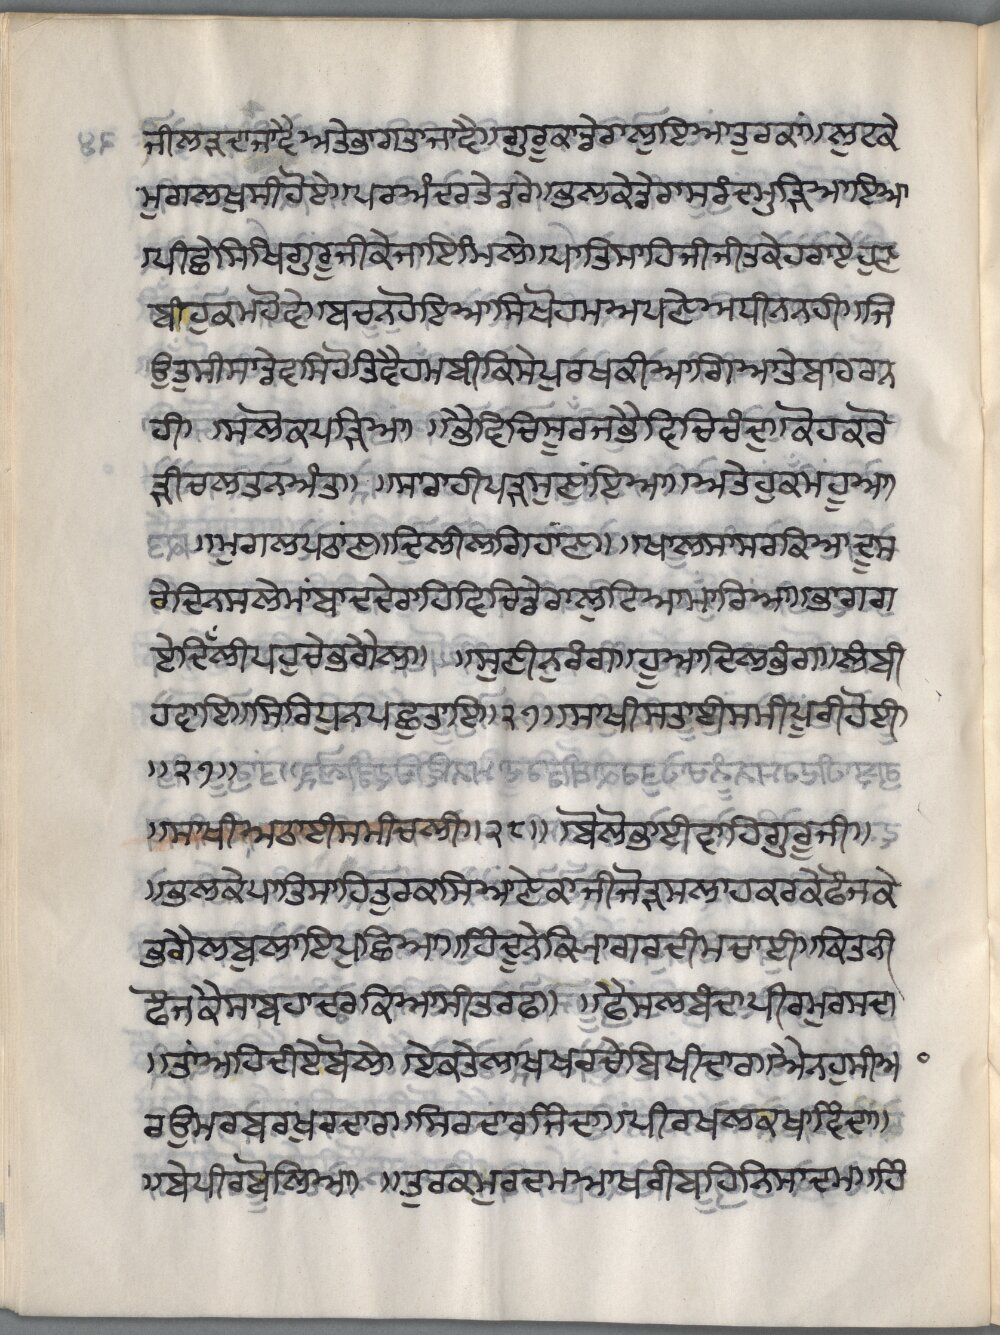 ਜੀਲੜਦਾਜਾਂਦੈਅਤੇਭਾਗਤਾਜਾਂਦੈ॥ਗੁਰੂਕਾਡੇਰਾਲੁਇਆਤੁਰਕਾਂ॥ਲੁਟਕੇ
ਮੁਗਲਖੁਸੀਹੋਏ॥ਪਰਅੰਦਰਤੇਡਰੇ॥ਭਲਕੇਡੇਰਾਸਰੰਦਮੁੜਿਆਇਆ
ਪੀਛੇਸਿਖਗੁਰੂਜੀਕੇਜਾਇਮਿਲੇ॥ਪਾਤਿਸਾਹਿਜੀਜੀਤਕੇਹਰਾਏਹੁਣ
ਬੀਹੁਕਮਹੋਵੇ॥ਬਚਨਹੋਇਆ॥ਸਿਖੋਹਮਅਪਣੇਅਧੀਨਨਹੀ॥ਜਿ
ਉਤੁਸੀਸਾਡੇਵਸਿਹੋਤਿਵੈਹਮਬੀਕਿਸੇਪੁਰਖਕੀਆਗਿਆਤੇਬਾਹਰਨ
ਹੀ॥ਸਲੋਕਪੜਿਆ॥ਭੈਵਿਚਿਸੂਰਜਭੈਵਿਚਿਚੰਦੁ॥ਕੋਹਕਰੋ
ੜੀਚਲਤਨਅੰਤੁ॥॥ਸਰਾਹੀਪੜਸੁਣਾਇਆ॥ਅਤੇਹੁਕਮਹੂਆ॥
॥ਮੁਗਲਪਠਾਂਣ॥ਦਿਲੀਲਗਿਹਾਂਣ॥॥ਖਾਲਸਾਸਰਕਿਆਦੂਸ
ਰੇਦਿਨਸਲੇਮਾਂਬਾਦਦੇਰਾਹਿਵਿਚਿਡੇਰਾਲੁਟਿਆਮਾਰਿਆ॥ਭਾਗਗ
ਏਦਿੱਲੀਪਹੁਚੇਭੁਰੇਗੈਲ॥॥ਸੁਣੀਨੁਰੰਗਾ॥ਹੂਆਦਿਲਭੰਗ॥ਲੰਬੀ
ਹਵਾਇ॥ਸਿਰਿਧੁਨਪਛੁਤਾਇ॥੨੭॥ਸਾਖੀਸਤਾਈਸਮੀਪੂਰੀਹੋਈ
॥੨੭॥
॥ਸਾਖੀਅਠਾਈਸਮੀਚਲੀ॥੨੮॥ਬੋਲੋਭਾਈਵਾਹਿਗੁਰੂਜੀ॥
॥ਭਲਕੇਪਾਤਿਸਾਹਿਤੁਰਕਾਸਿਆਣੇਕਾਜੀਜੋੜਸਲਾਹਕਰਕੇਫੌਜਕੇ
ਭੁਰੇਗੈਲਬੁਲਾਇਪੁਛਿਆ॥ਹਿੰਦੂਨੇਕਿਆਗਰਦੀਮਚਾਈ॥ਕਿਤਨੀ
ਫੌਜਕੈਸਾਬਹਾਦਰਕਿਆਸੀਤਰਫ॥॥ਫੈਸਲਬੰਦਾਪੀਰਮੁਰਸਦਾ
॥ਤਾਂਅਹਿਦੀਏਬੋਲੇ॥ਏਕਤੇਲਾਖਖਰਚੇਬਿਖੀਦਾਰਾ॥ਐਨਹੁਸੀਅ
ਰਉਮਰਬਰਖੁਰਦਾਰਾ॥ਸਿਰਦਾਰਜਿੰਦਾ॥ਪੀਰਖਲਕਖਾਵਿੰਦਾ॥
॥ਬੇਪੀਰਬੋਲਿਆ॥॥ਤੁਰਕਮੁਰਦਮਆਖਰੀਬਹਿਨਿਸਾਦਮਾ॥ਹਿੰ